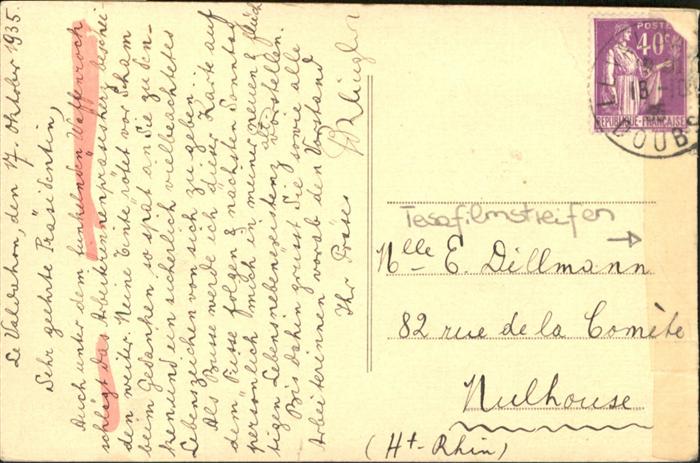 Le Valdahon, den 17. Oktober 1935.
Sehr geehrte Präsidentin,
Auch unter dem funkelnden Waffenrock
schlägt das Arbeiterinnenpräsesherz beschei-
den weiter. Meine Tinte rötet vor Scham
beim Gedanken so spät an Sie zu den-
ken und ein sicherlich vielbeachtetes
Lebenszeichen von sich zu geben.
Als Busse werde ich dieser Karte auf
dem Fusse folgen & nächsten Sonntag
persönlich mich in meiner neuen &
tigen Lebensnebenexistenz vorstellen.
Bis dahin grüsst Sie sowie alle
Arbeiterinnen vorab den Vorstand
Ihr Präses
POSTES
40c
RÉPUBLIQUE-FRANÇAISE
18-10
DOUBS
Tesafilmstreifen
→
Mlle E. Dillmann
82 rue de la Comète
Mulhouse
(Ht-Rhin)